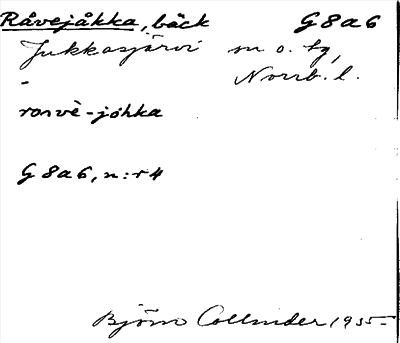 Råvejåkka, bäck G8a6
Jukkasjärvi sn o. tg,
- Norrb. l.
roavvè-jόhka
G8a6, n:r4
Björn Collinder 1935-